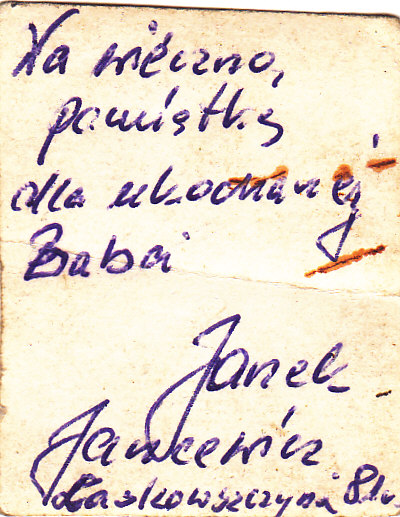 Na wieczno,
pamiątkę
dla ukochanej
Babci
Janek
Jancewicz
Laskowszczyzna